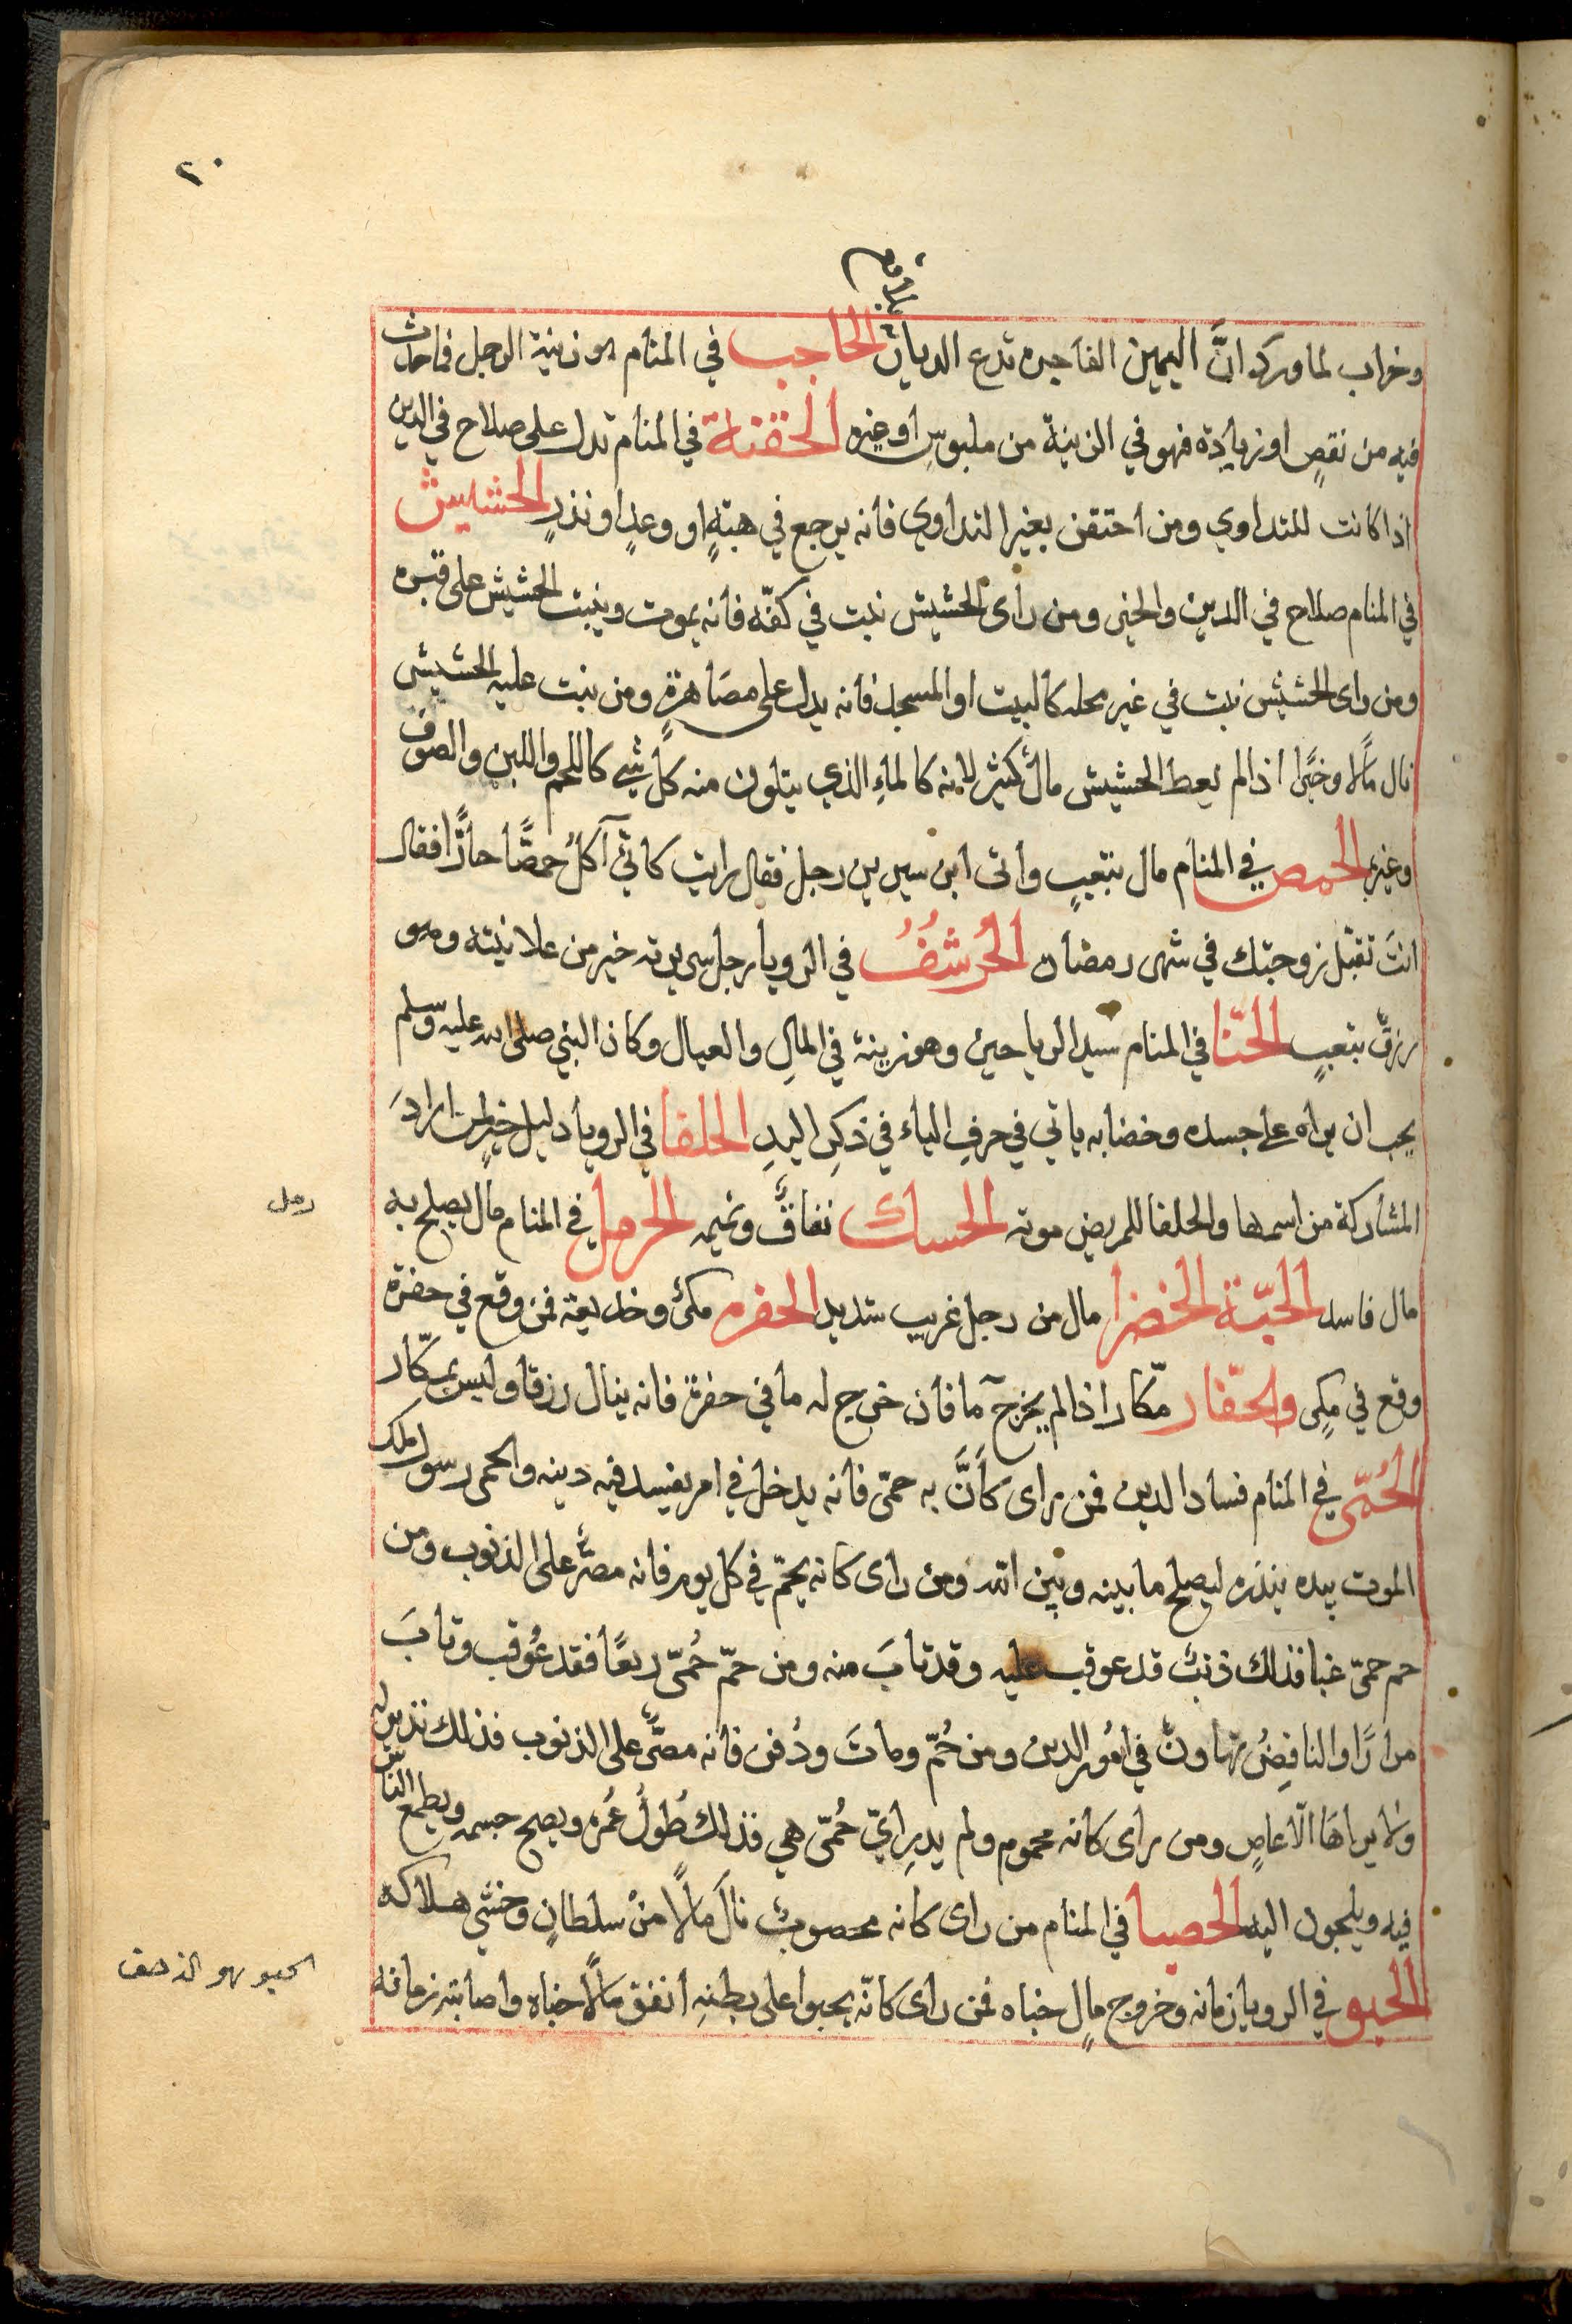 ٢٠
وخراب لما ورد انَّ اليمين الفاجره تدع الديار الحاجب في المنام هو زينة الرجل فما حدث
فيه من نقصٍ او زيادة فهو في الزينة من ملبوسٍ او غيره الحقنة في المنام تدل على صلاح في الدين
اذا كانت للتداوي ومن احتقن بغير التداوي فانه يرجع في هبتهٍ او وعدٍ او نذرٍ الحشيش
في المنام صلاح في الدين والخير ومن رأى الحشيش نبت في كفّه فانه يموت وينبت الحشيش على قبره
ومن راى الحشيش نبت في غير محله كالبيت او المسجد فانه يدل على مصَاهرةٍ ومن نبت عليه الحشيش
نال مالًا وخيرًا اذا لم يعط الحشيش مال كثير لانه كالماءِ الذي يتلون منه كل شي كاللحم واللبن والصوف
وغيره الحمص في المنام مال بتعبٍ وأتى ابن سيرين رجل فقال رايت كاني آكلُ حمصًّا حارًّا فقال
انتَ تقبّل زوجتك في شهر رمضان الحُرشُفُ في الرويا رجل سريرته خير من علانيته وهو
رزقٌ بتعبٍ الحنّا في المنام سيد الرياحين وهو زينة في المالِ والعيال وكان النبي صلى الله عليه وسلم
يحب ان يراه على جسده وخضابه ياتي في حرفِ الياء في ذكرِ اليدِ الحلفا في الرويا دليل خيرٍ لمن ارادَ
المشاركة من اسمها والحلفا للمريض موته الحسك نفاقٌ ونميمه الحرمل في المنام مال يصلح به
رمل
مال فاسد الحبّة الخضرا مال من رجل غريب شديد الحفره مكرٌ وخديعة فمن وقع في حفرة
وقع في مكرٍ والحفّار مكّار اذا لم يخرج ما فان خرج له ما في حفرة فانه ينال رزقا وليس بمكّار
الحُمّى في المنام فساد الدين فمن راى كأنَّ به حمّى فانه يدخل في امر يفسد فيه دينه والحمى رسول ملك
الموت بيده ينذره ليصلح ما بينه وبين الله ومن راى كانه يحمّ في كل يوم فانه مصرٌّ على الذنوب ومن
حم حمّى غبا فذلك ذنبٌ قد عوقب عليه وقد تابَ منه ومن حمّ حُمّى ربعًا فقد عُوقب وتابَ
مرارًا والنافِضُ تهاونٌ في امُور الدين ومن حُمّ وماتَ ودُفن فانه مصرٌّ على الذنوب فذلك نذير له
ولا يراهَا الّا عاصٍ ومن راى كانه محموم ولم يدرِ ايّ حُمّى هي فذلك طُولُ عُمره ويصح جسمه ويطمع الناسُ
فيه ويلجون اليه الحصبا في المنام من راى كانه محصوبٌ نالَ مالًا منْ سلطانٍ وخشي هلاكه
الحبو في الرويا زمانه وخروج مالٍ خباه فمن راى كانّه يحبوا على بطنهِ انفق مالًا خباه واصابته زمانه
الحبو هو الزحف